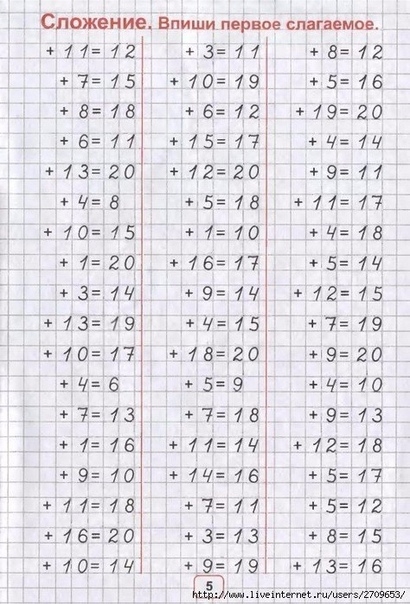 Сложение. Впиши первое слагаемое.
+ 11 = 12 + 3 = 11 + 8 = 12
+ 7 = 15 + 10 = 19 + 5 = 16
+ 8 = 18 + 6 = 12 + 19 = 20
+ 6 = 11 + 15 = 17 + 4 = 14
+ 13 = 20 + 12 = 20 + 9 = 11
+ 4 = 8 + 5 = 18 + 11 = 17
+ 10 = 15 + 1 = 10 + 4 = 18
+ 1 = 20 + 16 = 17 + 5 = 14
+ 3 = 14 + 9 = 14 + 12 = 15
+ 13 = 19 + 4 = 15 + 7 = 19
+ 10 = 17 + 18 = 20 + 9 = 20
+ 4 = 6 + 5 = 9 + 4 = 10
+ 7 = 13 + 7 = 18 + 9 = 13
+ 1 = 16 + 11 = 14 + 12 = 18
+ 9 = 10 + 14 = 16 + 5 = 17
+ 11 = 18 + 7 = 11 + 5 = 12
+ 16 = 20 + 3 = 13 + 8 = 15
+ 10 = 14 + 9 = 19 + 13 = 16
5
http://www.liveinternet.ru/users/2709653/